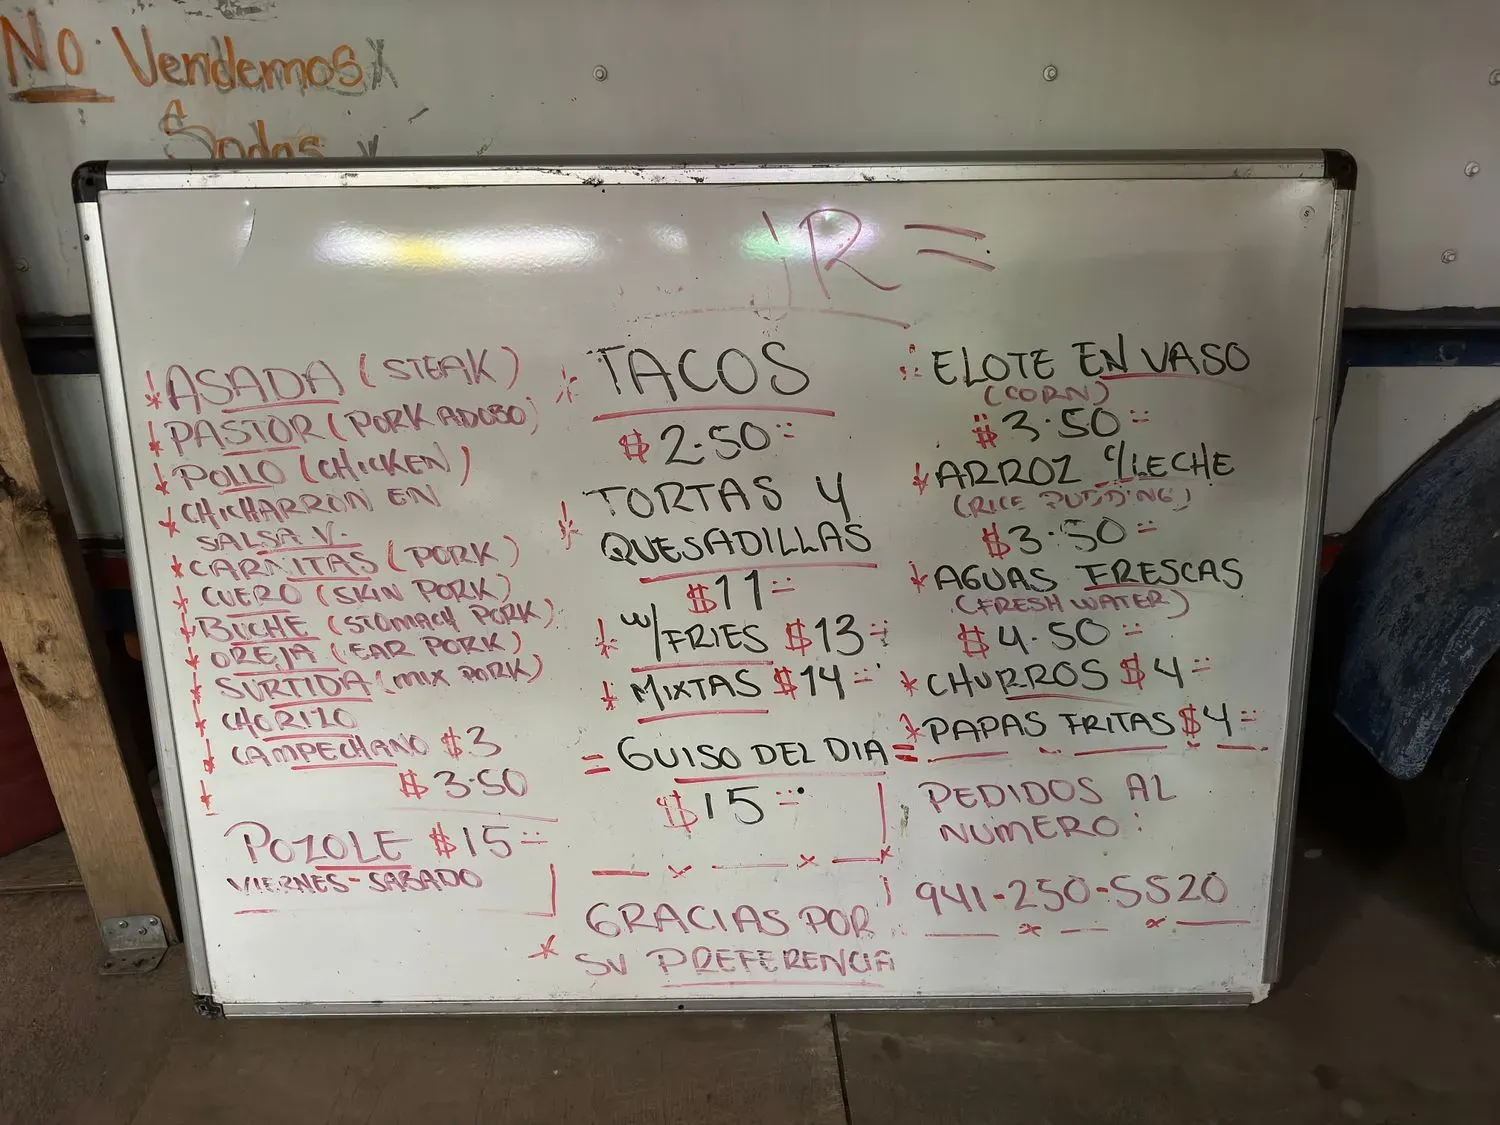 No Vendemos
Sodas
JR =
* ASADA (STEAK)
* PASTOR (PORK ADOBO)
* POLLO (CHICKEN)
* CHICHARRON EN
SALSA V.
* CARNITAS (PORK)
* CUERO (SKIN PORK)
* BUCHE (STOMACH PORK)
* OREJA (EAR PORK)
* SURTIDA (MIX PORK)
* CHORIZO
* CAMPECHANO $3
$3.50
POZOLE $15=
VIERNES-SABADO
* TACOS
$2.50=
* TORTAS Y
QUESADILLAS
$11=
* W/FRIES $13=
* MIXTAS $14=
= GUISO DEL DIA =
$15=
GRACIAS POR
* SU PREFERENCIA
ELOTE EN VASO
(CORN)
$3.50=
* ARROZ C/LECHE
(RICE PUDDING)
$3.50=
* AGUAS FRESCAS
(FRESH WATER)
$4.50=
* CHURROS $4=
* PAPAS FRITAS $4=
PEDIDOS AL
NUMERO:
941-250-5520